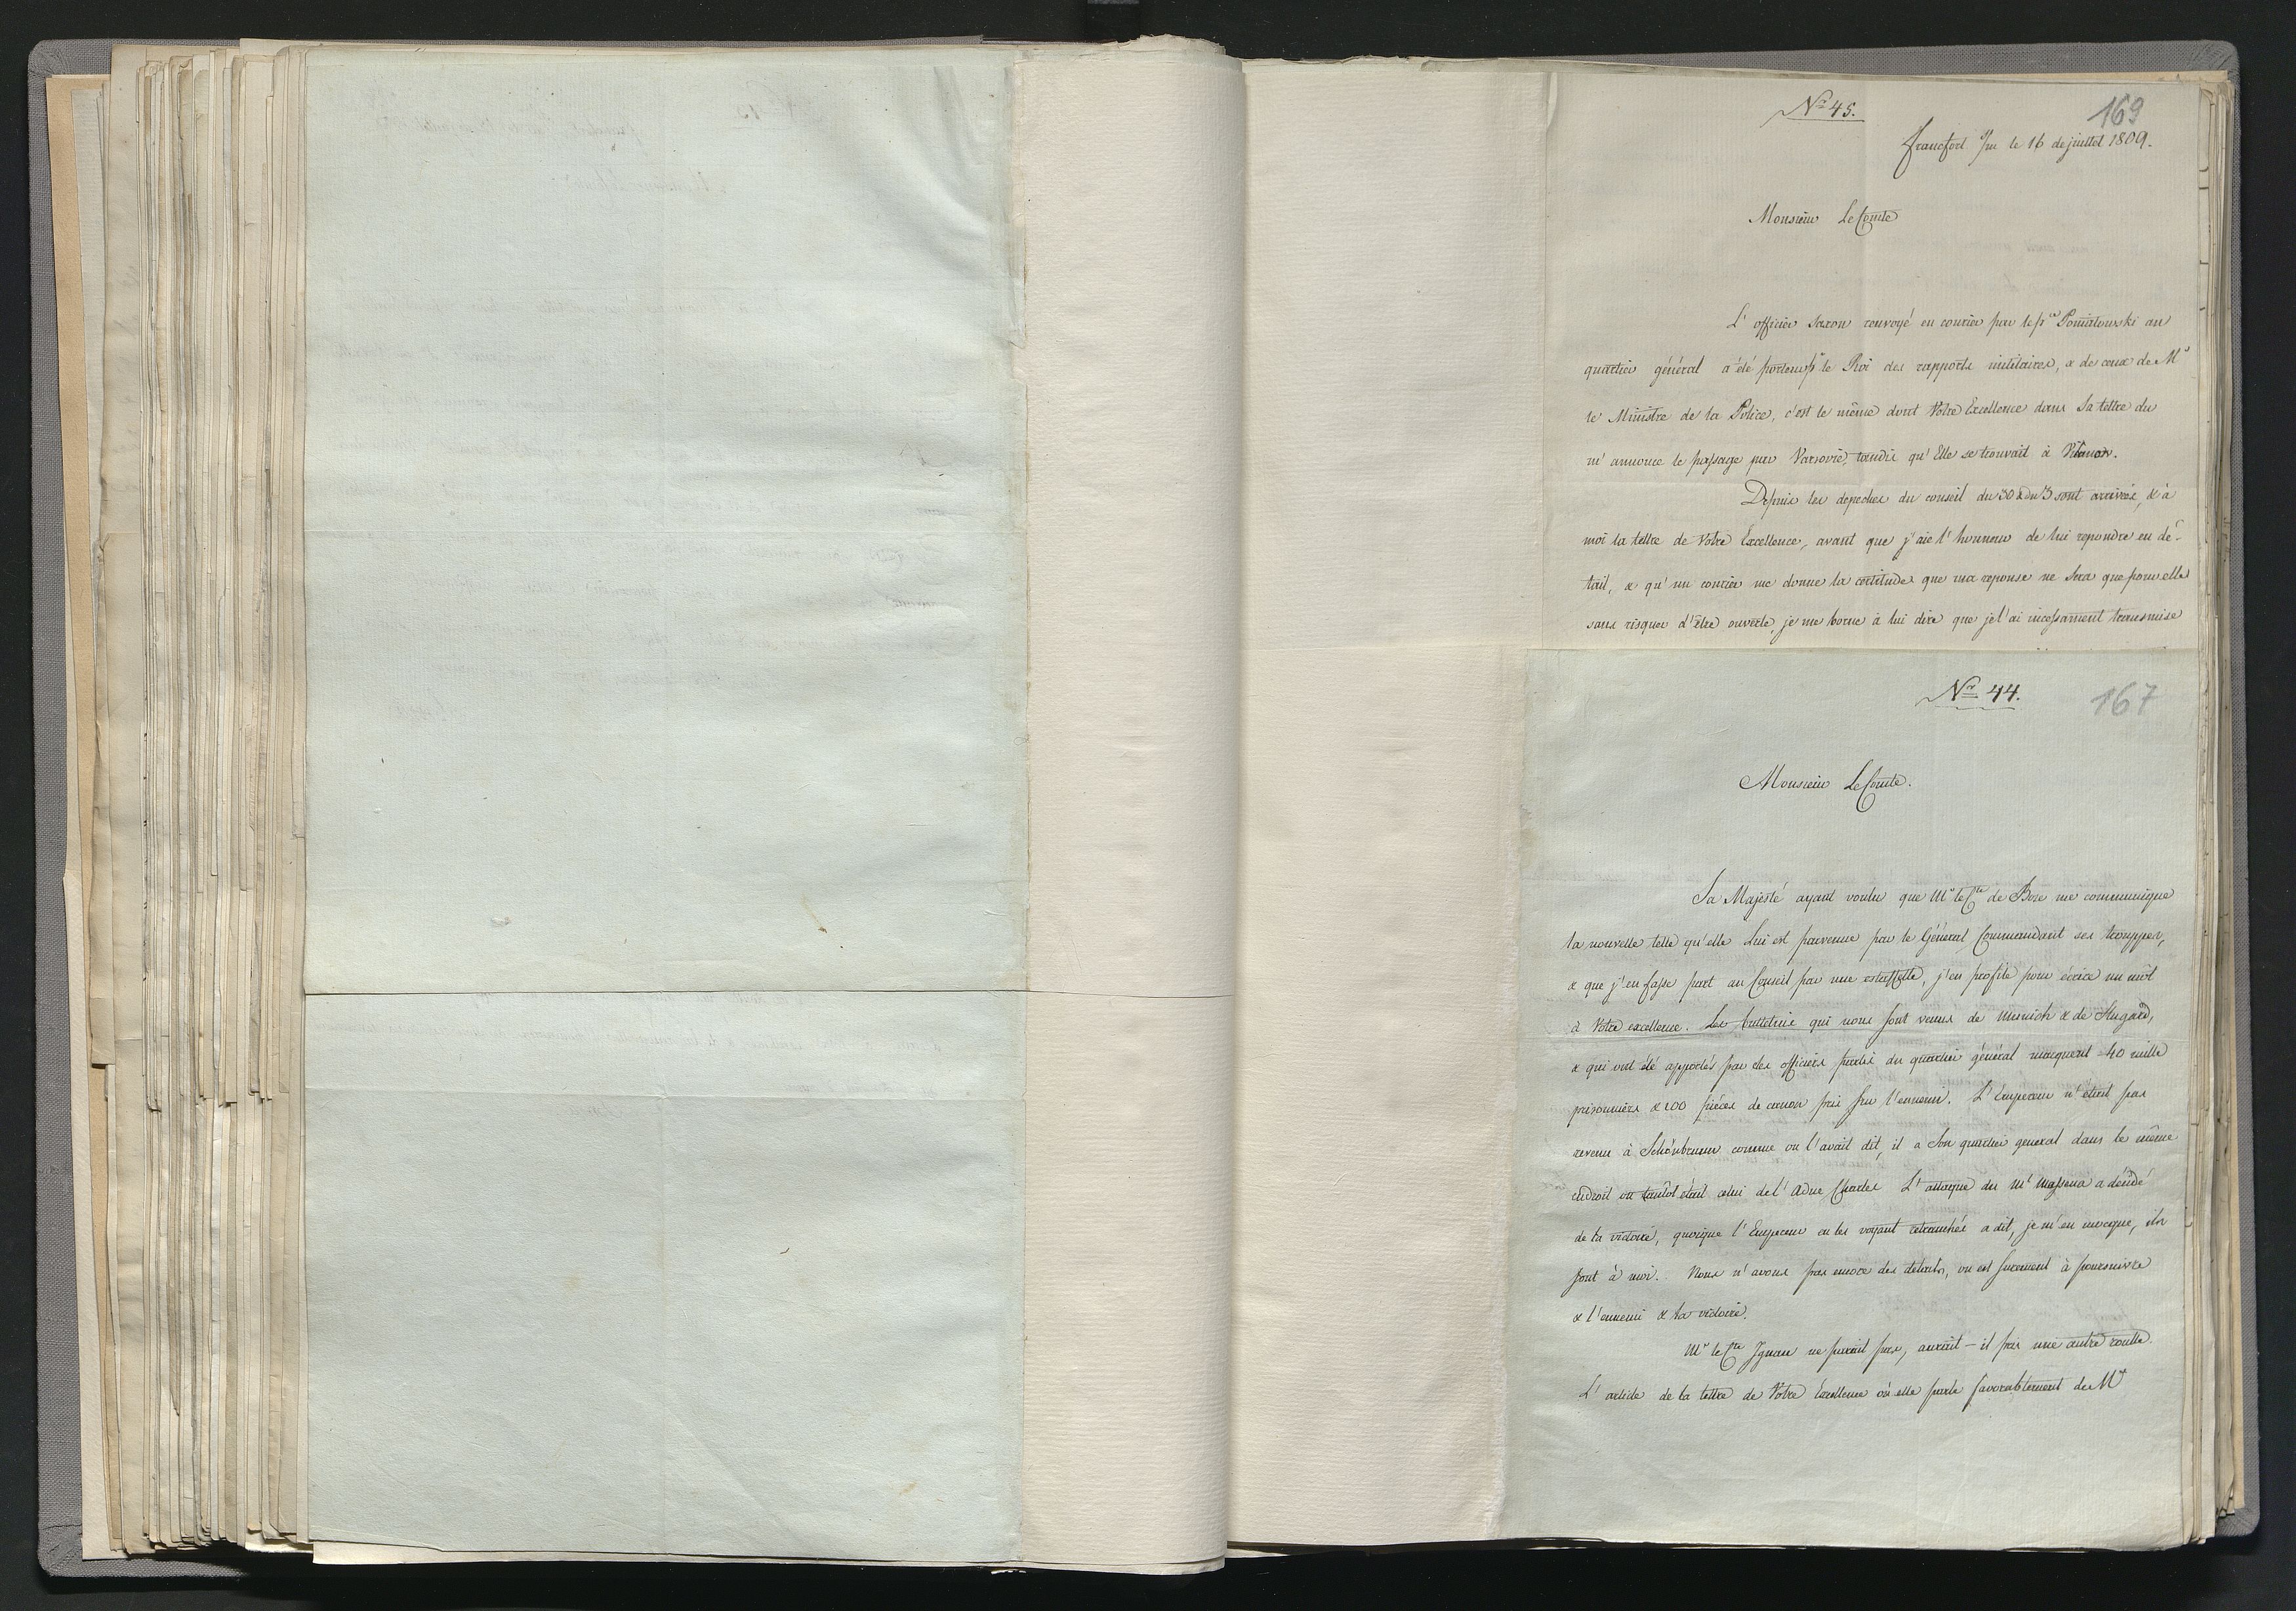 Nº 45.
169
Francfort s/m le 16 de juillet 1809.
Monsieur Le Comte
L'officier saxon renvoyé en courier par le pce Poniatowski au
quartier général a été porteur pr le Roi des rapports militaires, & de ceux de Mr
le Ministre de la Police, c'est le même dont Votre Excellence dans Sa lettre du
m'annonce le passage par Varsovie, tandis qu'Elle se trouvait à Vilanov.
Depuis les depeches du conseil du 30 & du 3 sont arrivées, & à
moi la lettre de Votre Excellence, avant que j'aie l'honneur de lui repondre en dé-
tail, & qu'un courier me donne la certitude que ma reponse ne sera que pour elle
sans risquer d'être ouverte, je me borne à lui dire que je l'ai incessament transmise
Nr 44.
167
Monsieur Le Comte.
Sa Majesté ayant voulu que Mr le Cte de Bose me communique
la nouvelle telle qu'elle Lui est parvenue par le Général Commandant ses trouppes,
& que j'en fasse part au Conseil par une estaffette, j'en profite pour écrire un môt
à Votre excellence. Les bulletins qui nous sont venus de Munich & de Stugard,
& qui ont été apportés par des officiers partis du quartier général marquent 40 mille
prisonniers & 200 pièces de canon pris sur l'ennemi. L'Empereur n'était pas
revenu à Schönbrunn comme on l'avait dit, il a Son quartier general dans le même
endroit où tantôt était celui de l'Aduc Charles L'attaque du Ml Massena a décidé
de la victoire, quoique l'Empereur en les voyant retranchés a dit, je m'en mocque, ils
sont à moi. Nous n'avons pas encore des détails, on est surement à poursuivre
& l'ennemi & la victoire.
Mr le Cte Ignace ne parait pas, aurait-il pris une autre routte.
L'article de la lettre de Votre Excellence où elle parle favorablement de Mr